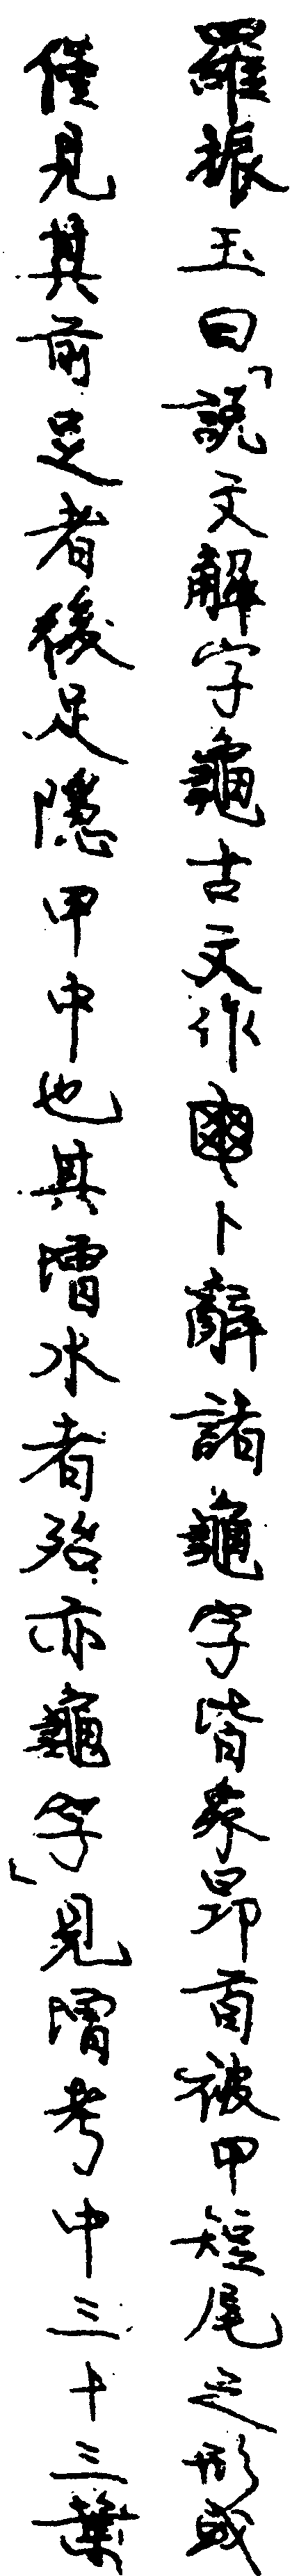 羅振玉曰「說文解字龜古文作卜辭諸龜字皆象昂首被甲短尾之形或
僅見其前足者後足隱甲中也其增水者殆亦龜字」見增考中三十三葉